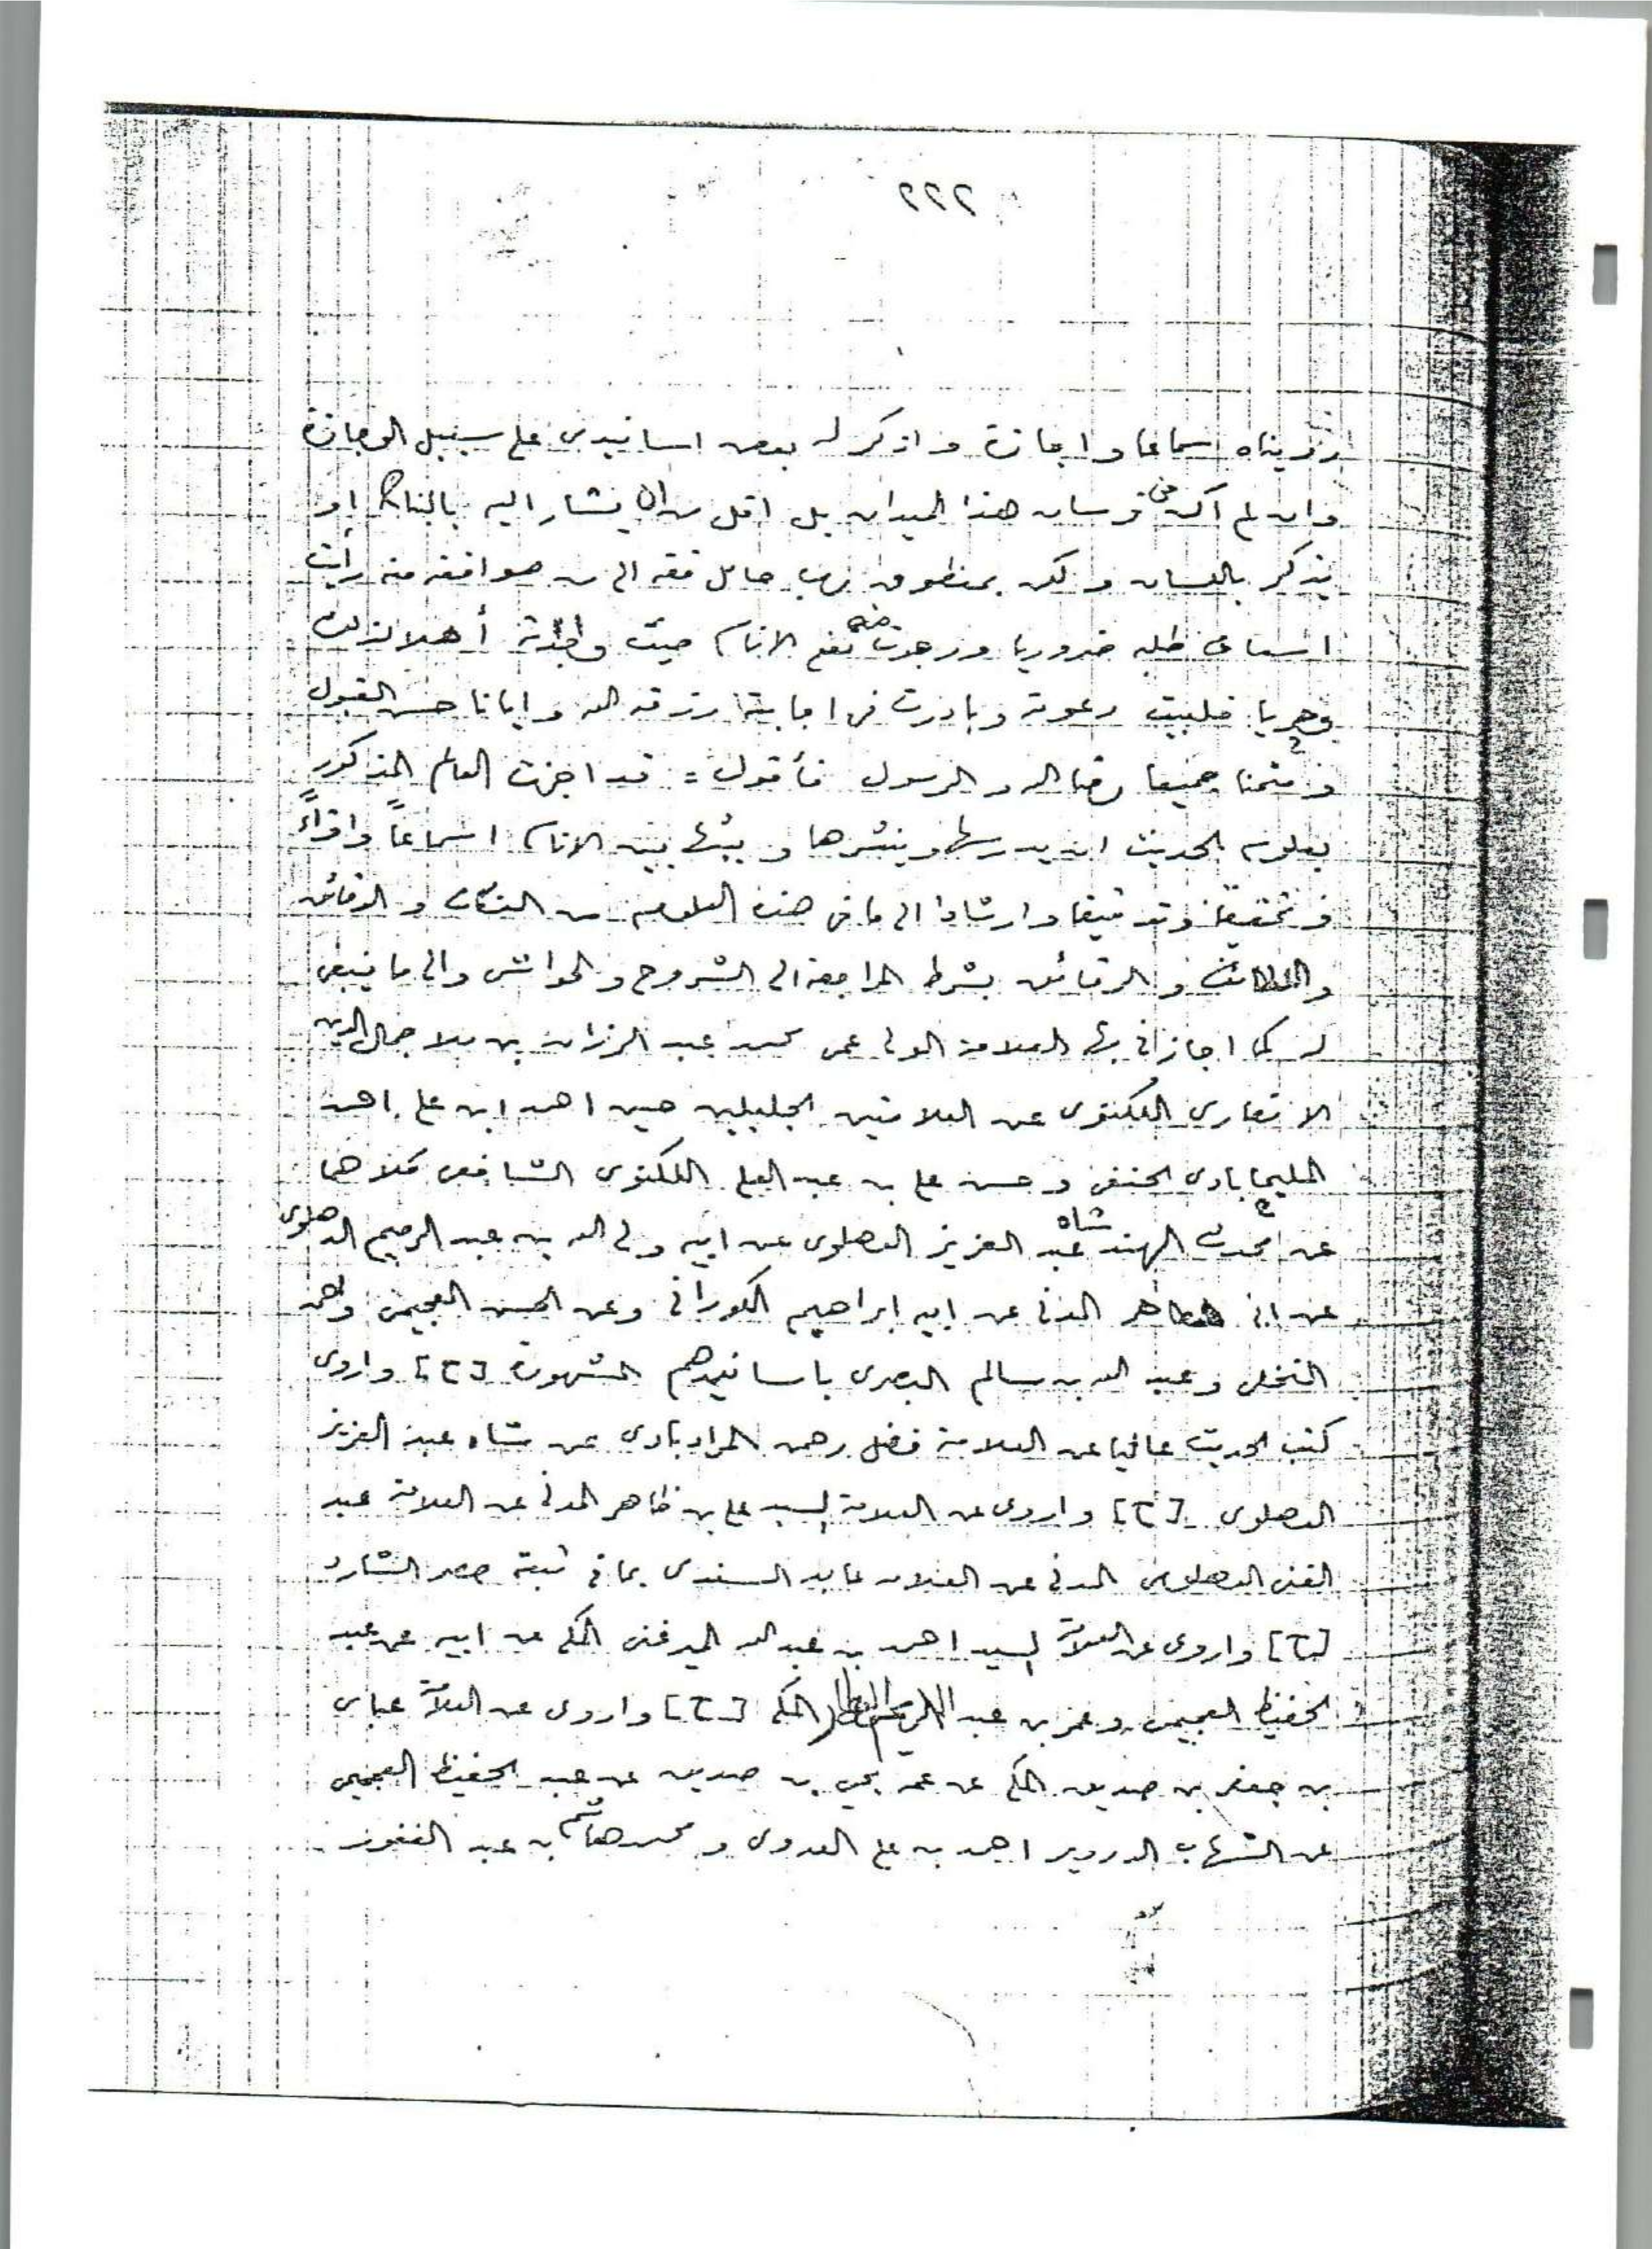 ٢٢٢
رويناه اسماعا واجازة واذكر له بعض اسانيدى على سبيل الوجازة
وان لم اكن من فرسان هذا الميدان بل اقل من ان يشار اليه بالبنان او
يذكر باللسان ولكن بمنطوق رب حامل فقه الى من هو افقه منه رأيت
اسعاف طلبه ضروريا ورجوت منه نفع الانام حيث وجدته أهلا لذلك
وحريا فلبيت دعوته وبادرت فى اجابته رزقه الله وايانا حسن القبول
ومتمنا جميعا رضا الله والرسول فأقول = قد اجزت العالم المذكور
بعلوم الحديث ان يدرسها وينشرها ويبثها بين الانام اسماعاً واقراءً
وتحقيقا وتدقيقا وارشادا الى ما فى هذه العلوم من النكات والدقائق
واللطائف والرقائق بشرط المراجعة الى الشروح والحواشى والى ما ينبغى
له كما اجازنى بها العلامة الولى عمى محمد عبد الرزاق بن ملا جمال الدين
الانصارى اللكنوى عن العلامتين الجليلين حسين احمد ابن على احمد
المليحابادى الحنفى وحسن على بن عبد العلى اللكنوى الشافعى كلاهما
عن محدث الهند شاه عبد العزيز الدهلوى عن ابيه ولى الله بن عبد الرحيم الدهلوى
عن ابى طاهر المدنى عن ابيه ابراهيم الكورانى وعن الحسن العجيمى واحمد
النخلى وعبد الله بن سالم البصرى باسانيدهم المشهورة [ح] واروى
كتب الحديث عاليا عن العلامة فضل رحمن المرادبادى عن شاه عبد العزيز
الدهلوى [ح] واروى عن العلامة السيد على بن ظاهر المدنى عن العلامة عبد
الغنى الدهلوى المدنى عن العلامة عابد السندى بما فى ثبته حصر الشارد
[ح] واروى عن العلامة السيد احمد بن عبد الله الميرغنى المكى عن ابيه عن عبد
الحفيظ العجيمى وعمر بن عبد المكى [ح] واروى عن العلامة عباس
بن جعفر بن صديق المكى عن عمه يحيى بن صديق عن عبد الحفيظ العجيمى
عن الشهاب الدردير احمد بن على العدوى ومحمد هاشم بن عبد الغفور